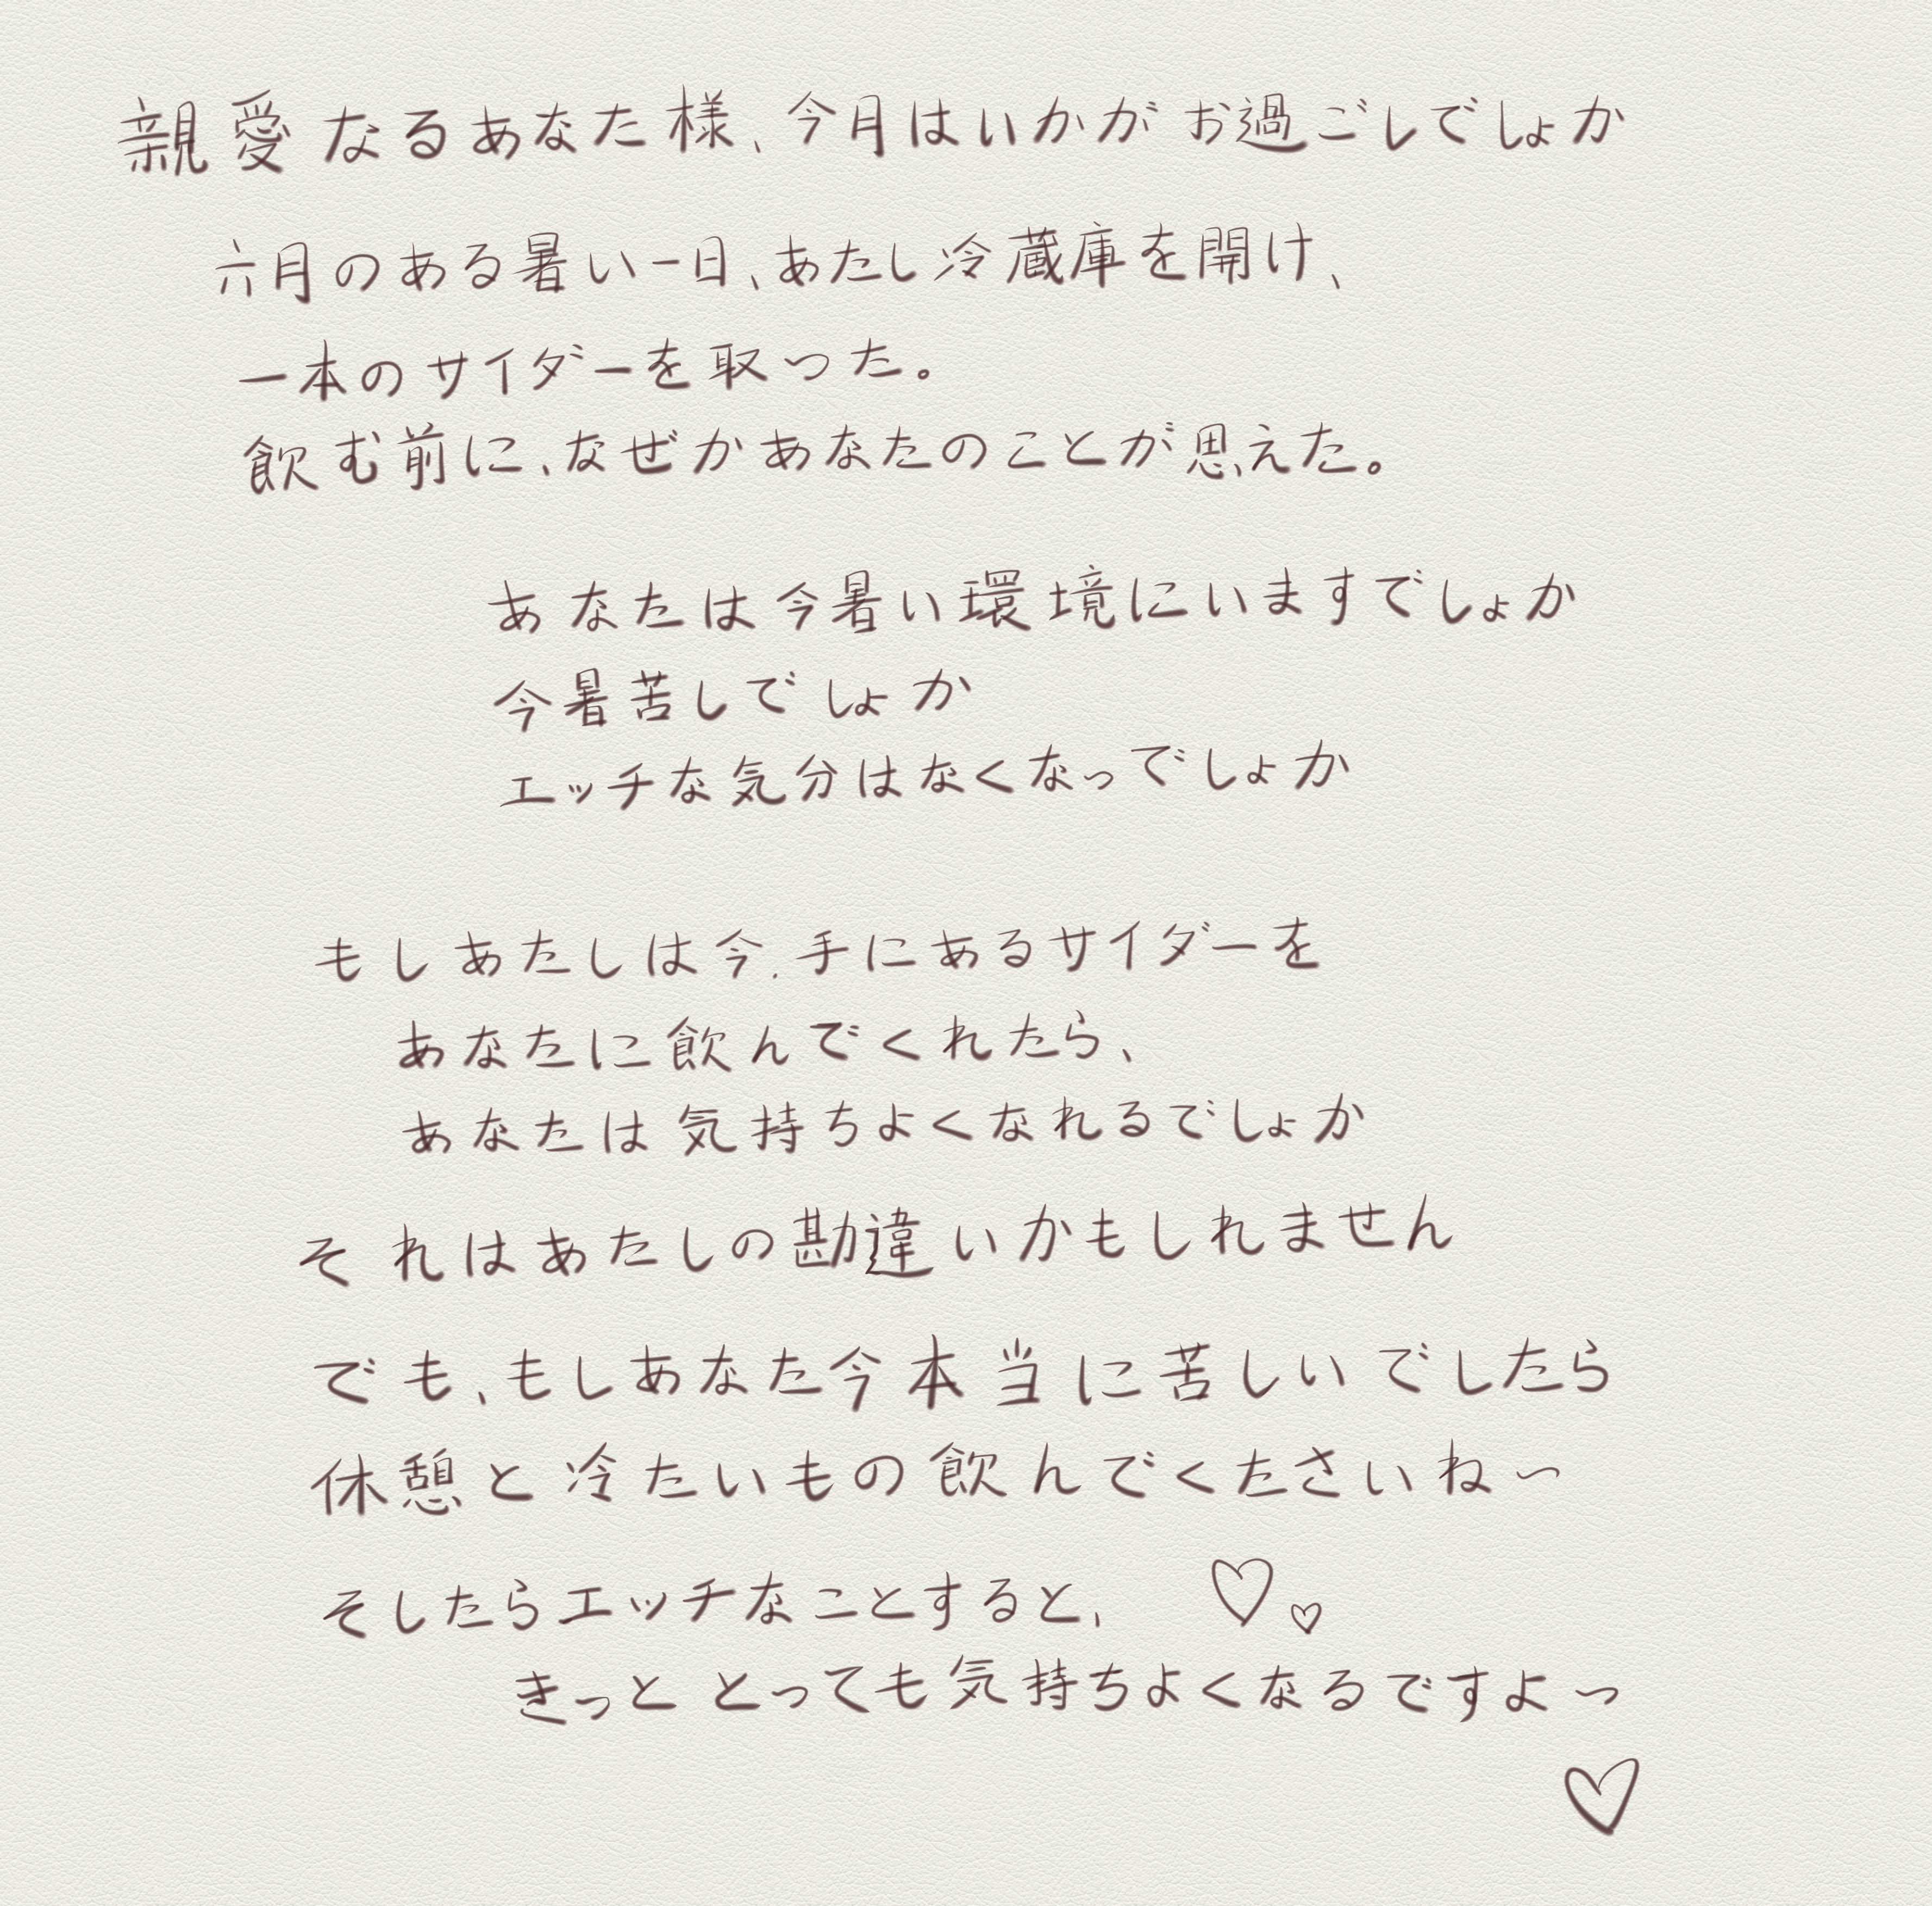 親愛なるあなた様、今月はいかがお過ごしでしょか
六月のある暑い一日、あたし冷蔵庫を開け、
一本のサイダーを取った。
飲む前に、なぜかあなたのことが思えた。
あなたは今暑い環境にいますでしょか
今暑苦しでしょか
エッチな気分はなくなっでしょか
もしあたしは今.手にあるサイダーを
あなたに飲んでくれたら、
あなたは気持ちよくなれるでしょか
それはあたしの勘違いかもしれません
でも、もしあなた今本当に苦しいでしたら
休憩と冷たいもの飲んでくたさいね〜
そしたらエッチなことすると、♡♡
きっととっても気持ちよくなるですよ〜
♡